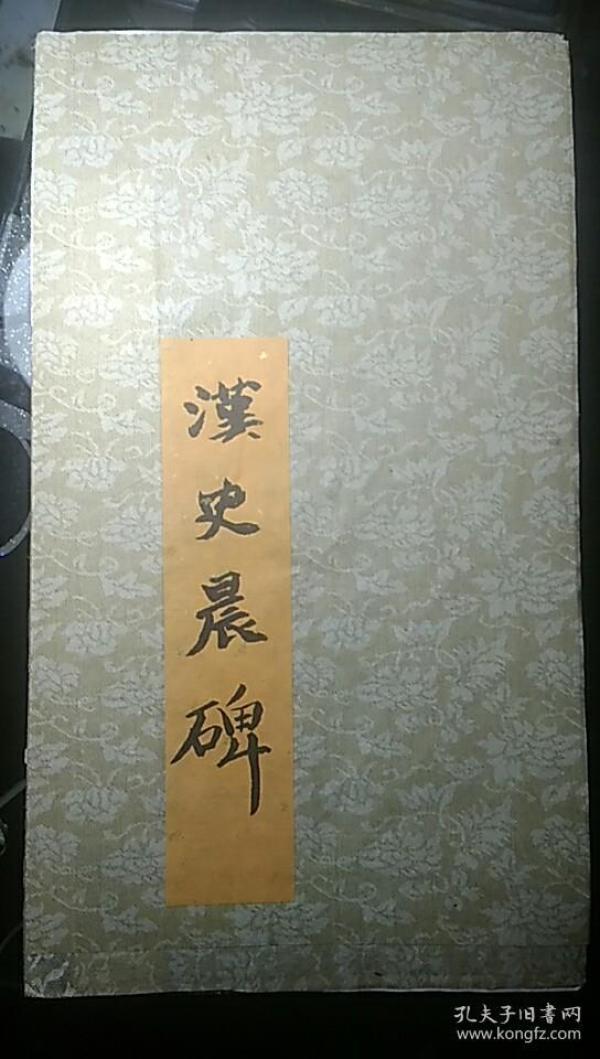 漢史晨碑
孔夫子旧書网
www.kongfz.com